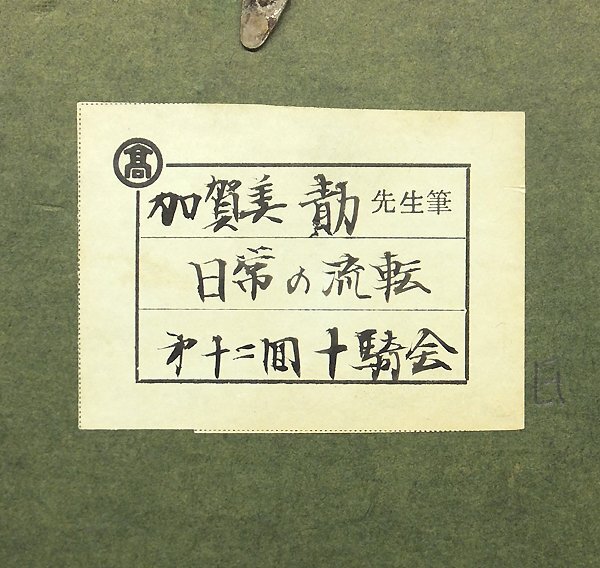 髙
加賀美 勣 先生筆
日常の流転
第十二回 十騎会